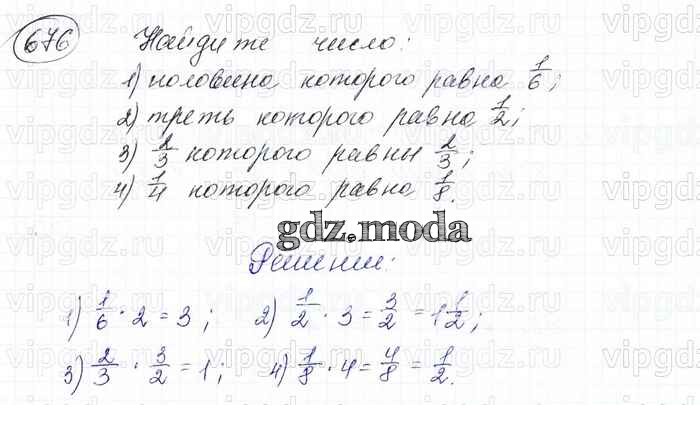 676 Найдите число:
1) половина которого равна 1/6;
2) треть которого равна 1/2;
3) 2/3 которого равны 2/3;
4) 1/4 которого равно 1/8.
gdz.moda
Решение:
1) 1/6 · 2 = 3; 2) 1/2 · 3 = 3/2 = 1 1/2;
3) 2/3 · 3/2 = 1; 4) 1/8 · 4 = 4/8 = 1/2.
vipgdz.com